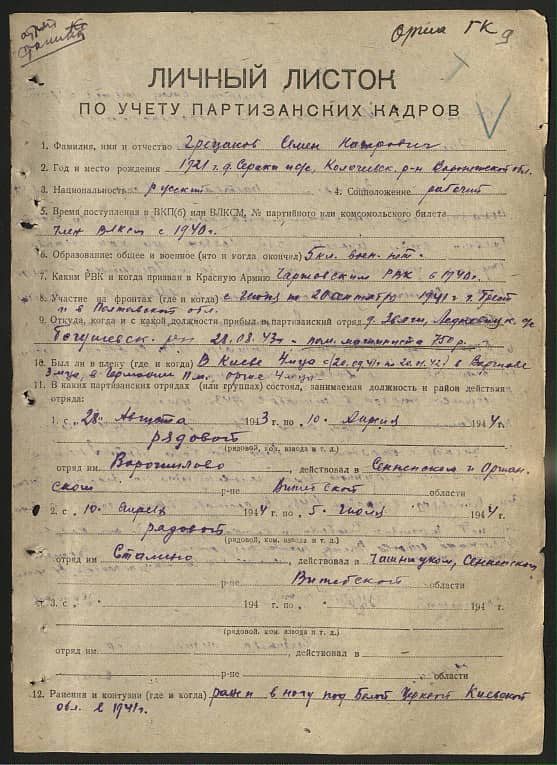 Орша ГК 9
ЛИЧНЫЙ ЛИСТОК
ПО УЧЕТУ ПАРТИЗАНСКИХ КАДРОВ
1. Фамилия, имя и отчество Семен
2. Год и место рождения 1921 г. д. р-н Воронежской обл.
3. Национальность русский 4. Соцположение рабочий
5. Время поступления в ВКП(б) или ВЛКСМ, № партийного или комсомольского билета
член ВЛКСМ с 1940 г.
6. Образование: общее и военное (что и когда окончил) 5 кл. воен. нет.
7. Каким РВК и когда призван в Красную Армию РВК в 1940 г.
8. Участие на фронтах (где и когда) с июня по 20 сентября 1941 г. г. Брест
и в Полтавской обл.
9. Откуда, когда и с какой должности прибыл в партизанский отряд д.
Богушевск. р-н 28.08.43 г. пом. машиниста 750 р.
10. Был ли в плену (где и когда) В Киеве 4 м-ца (20.09.41 по 20.01.42) в
3 м-ца, в Германии
11. В каких партизанских отрядах (или группах) состоял, занимаемая должность и район действия
отряда:
1. с „28" Августа 1943 г. по „10" Апреля 1944 г.
рядовой
(рядовой, ком. взвода и т. д.)
отряд им Ворошилова, действовал в Сенненском и Оршан-
ском р-не Витебской области
2. с „10" Апреля 1944 г. по „5" Июля 1944 г.
рядовой
(рядовой, ком. взвода и т. д.)
отряд им Сталина, действовал в Чашницком, Сенненском
р-не Витебской области
3. с „ " 194 г. по „ " 194 г.
(рядовой, ком. взвода и т. д.)
отряд им , действовал в
р-не области
12. Ранения и контузии (где и когда) ранен в ногу под Белой Церквой Киевской
обл. в 1941 г.